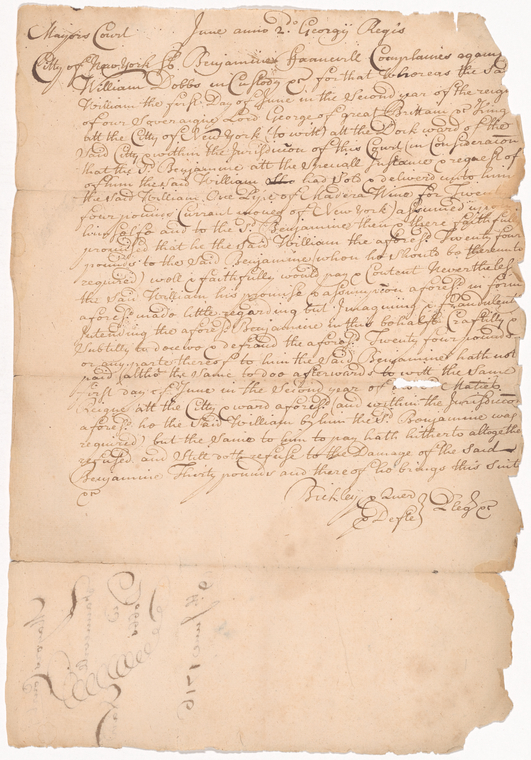 Mayors Court June anno 2.do Georgij Regis
Citty of New York ss. Benjamine Haanevill Complaines against
William Dobbs in Custody &c for that whereas the Sai
William the first Day of June in the Second year of the reign
of our Soveraigne Lord George of great Brittain &c King
att the City of New York (to witt) att the Dock ward of the
Said City within the Jurisdiccon of this Court in Consideracon
that the Sd. Benjamine att the Speciall Instance & request of
of him the said William had Sold & delivered unto him
the Said William One Pipe of Madera Wine for Twenty
four pounds Current money of New York) assumed upon
himselfe and to the Sd. Benjamine then & there faithfully
promised that he the Said William the aforesd Twenty four
pounds to the Said Benjamine when he should be thereunto
required) well & faithfully would pay & Content Neverthelesse
the Said William his promise & assumpcon aforesd in form
aforesd made little regarding but Imagining & fraudulently
Intending the aforesd Benjamine in this behalfe Craftily &
Subtilly to deceive & defraud the aforesd Twenty four pounds
or any parte thereof to him the Said Benjamine hath not
paid (altho the Same to doo afterwards to witt the Same
First day of June in the Second year of Maties
Reigne att the City & ward aforesd (and within the Jurisdiccon
aforesd he the Said William by him the Sd. Benjamine was
required) but the Same to him to pay hath hitherto altogether
refused and Still doth refuse to the Damage of the Said
Benjamine Thirty pounds and thereof he brings this Suit
&c
Bickley p Quer
p Defte Pleg &c
Dobbs
1716